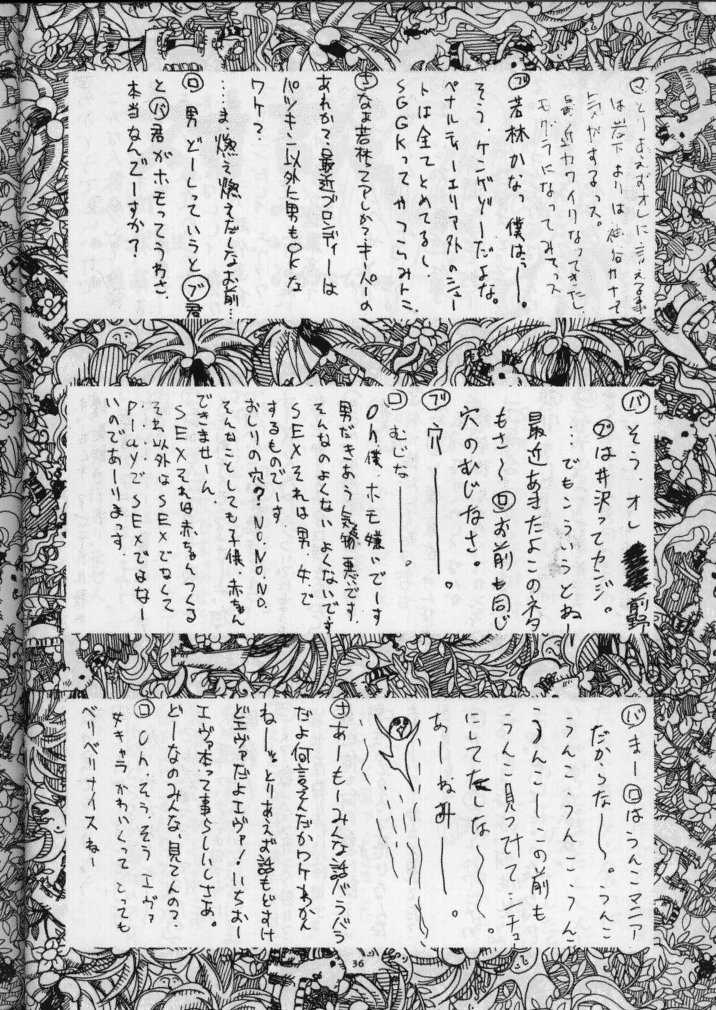 マとりあえずオレに言える事
は岩下よりは
気がするっス。
最近カワイクなってきたし
モグラになってみてっス
ブ若林かなっ僕はっー。
そう、ケンゲゾーだよな。
ペナルティーエリア外のシュー
トは全てとめてるし、
SGGKってやつらみんこ
ナなぜ若林でアしか?キーパーの
あれか?、最近ブロンディーは
パツキン以外に男もOKな
ワケ?
…ま燃え燃えだーなお前…
ロ男どーしっていうとブ君
とバ君がホモってうわさ、
本当なんでーすか?
バそう、オレ 前野
ブは井沢ってカンジ。
…でもこういうとねー
最近あきたよこのネタ
もさ〜ロお前も同じ
穴のむじなさ。
ブ穴ーーー。
ロむじなーーー。
Oh僕、ホモ嫌いでーす
男だきあう気持悪です。
そんなのよくないよくないです
SEXそれは男、女で
するものでーす。
おしりの穴?NO.NO.NO.
そんなことしても子供、赤ちゃん
できませーん。
SEXそれは赤ちゃんつくる
それ以外はSEXでなくして
……PlayでSEXではなー
いのであーりまっす。
バまーロはうんこマニア
だからなー〜。うんこ
うんこ、うんこ、うんこ
うんこーこの前も
うんこ見つけてシチュ
にしてたしな〜〜。
あーねみー〜。
ナあーもーみんな話バラバラ
だよ何言ってんだかワケわかん
ねーとりあえず話もどすけ
どエヴァだよエヴァ!いちおー
エヴァ本って事らしいしさあ。
どーなのみんな見てんの?、
ロOh、そう、そうエヴァ
女キャラかわいくってとっても
ベリベリナイスねー
36